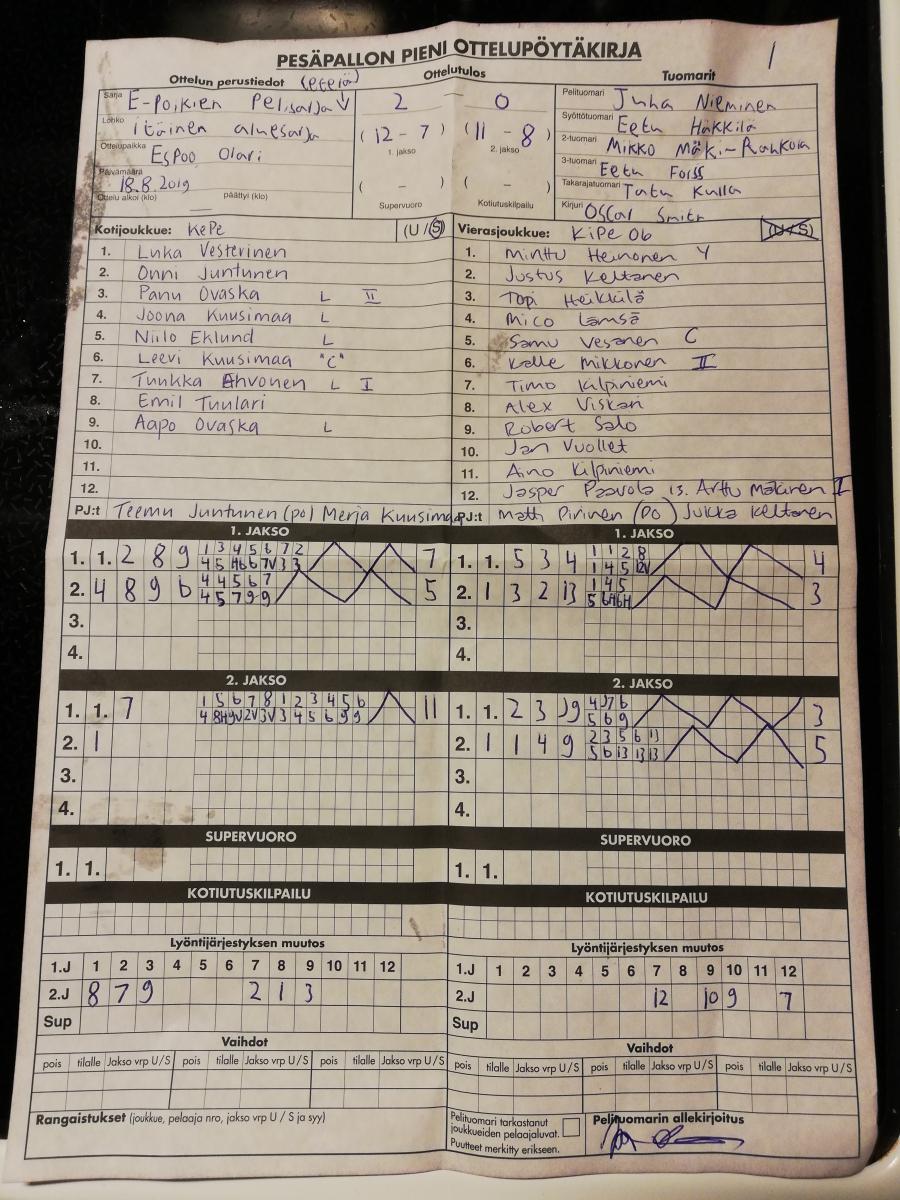 PESÄPALLON PIENI OTTELUPÖYTÄKIRJA 1
Ottelun perustiedot (etejä) Ottelutulos Tuomarit
Sarja E-Poikien Pelisarja 2 - 0 Pelituomari Juha Nieminen
Lohko itäinen aluesarja (12 - 7) (11 - 8) Syöttötuomari Eetu Häkkilä
Ottelupaikka Espoo Olari 1. jakso 2. jakso 2-tuomari Mikko Mäki-Rahkola
Päivämäärä 18.8.2019 ( - ) ( - ) 3-tuomari Eetu Forss
Ottelu alkoi (klo) päättyi (klo) Takarajatuomari Tatu Kulla
Supervuoro Kotiutuskilpailu Kirjuri Oscar Smith
Kotijoukkue: KePe (U/S) Vierasjoukkue: KiPe 06 (U/S)
1. Luka Vesterinen 1. Minttu Heinonen Y
2. Onni Juntunen 2. Justus Keltanen
3. Panu Ovaska L II 3. Topi Heikkilä
4. Joona Kuusimaa L 4. Mico Lämsä
5. Niilo Eklund L 5. Samu Vesanen C
6. Leevi Kuusimaa "C" 6. Kalle Mikkonen II
7. Tuukka Ahvonen L I 7. Timo Kilpiniemi
8. Emil Tuulari 8. Alex Viskari
9. Aapo Ovaska L 9. Robert Salo
10. 10. Jan Vuollet
11. 11. Aino Kilpiniemi
12. 12. Jasper Paavola 13. Arttu Mäkinen I
PJ:t Teemu Juntunen (po) Merja Kuusimaa PJ:t Matti Pirinen (PO) Jukka Keltanen
1. JAKSO 1. JAKSO
1. 1. 2 8 9 1 3 4 5 6 7 2 7 1. 1. 5 3 4 1 1 2 8 4
4 5 4H 6 7V 3 3 1 4 5 12V
2. 4 8 9 6 4 4 5 6 7 5 2. 1 3 2 13 1 4 5 3
4 5 7 9 9 5 6H 6H
3. 3.
4. 4.
2. JAKSO 2. JAKSO
1. 1. 7 1 5 6 7 8 1 2 3 4 5 6 11 1. 1. 2 3 4 7 6 3
4 8H 9V 2V 3V 3 4 5 6 9 9 5 6 9
2. 1 2. 1 1 4 9 2 3 5 6 13 5
5 6 13 13 13
3. 3.
4. 4.
SUPERVUORO SUPERVUORO
1. 1. 1. 1.
KOTIUTUSKILPAILU KOTIUTUSKILPAILU
Lyöntijärjestyksen muutos Lyöntijärjestyksen muutos
1.J 1 2 3 4 5 6 7 8 9 10 11 12 1.J 1 2 3 4 5 6 7 8 9 10 11 12
2.J 8 7 9 2 1 3 2.J 12 10 9 7
Sup Sup
Vaihdot Vaihdot
pois tilalle Jakso vrp U/S pois tilalle Jakso vrp U/S pois tilalle Jakso vrp U/S pois tilalle Jakso vrp U/S pois tilalle Jakso vrp U/S pois tilalle Jakso vrp U/S
Rangaistukset (joukkue, pelaaja nro, jakso vrp U / S ja syy) Pelituomari tarkastanut Pelituomarin allekirjoitus
joukkueiden pelaajaluvat.
Puutteet merkitty erikseen.